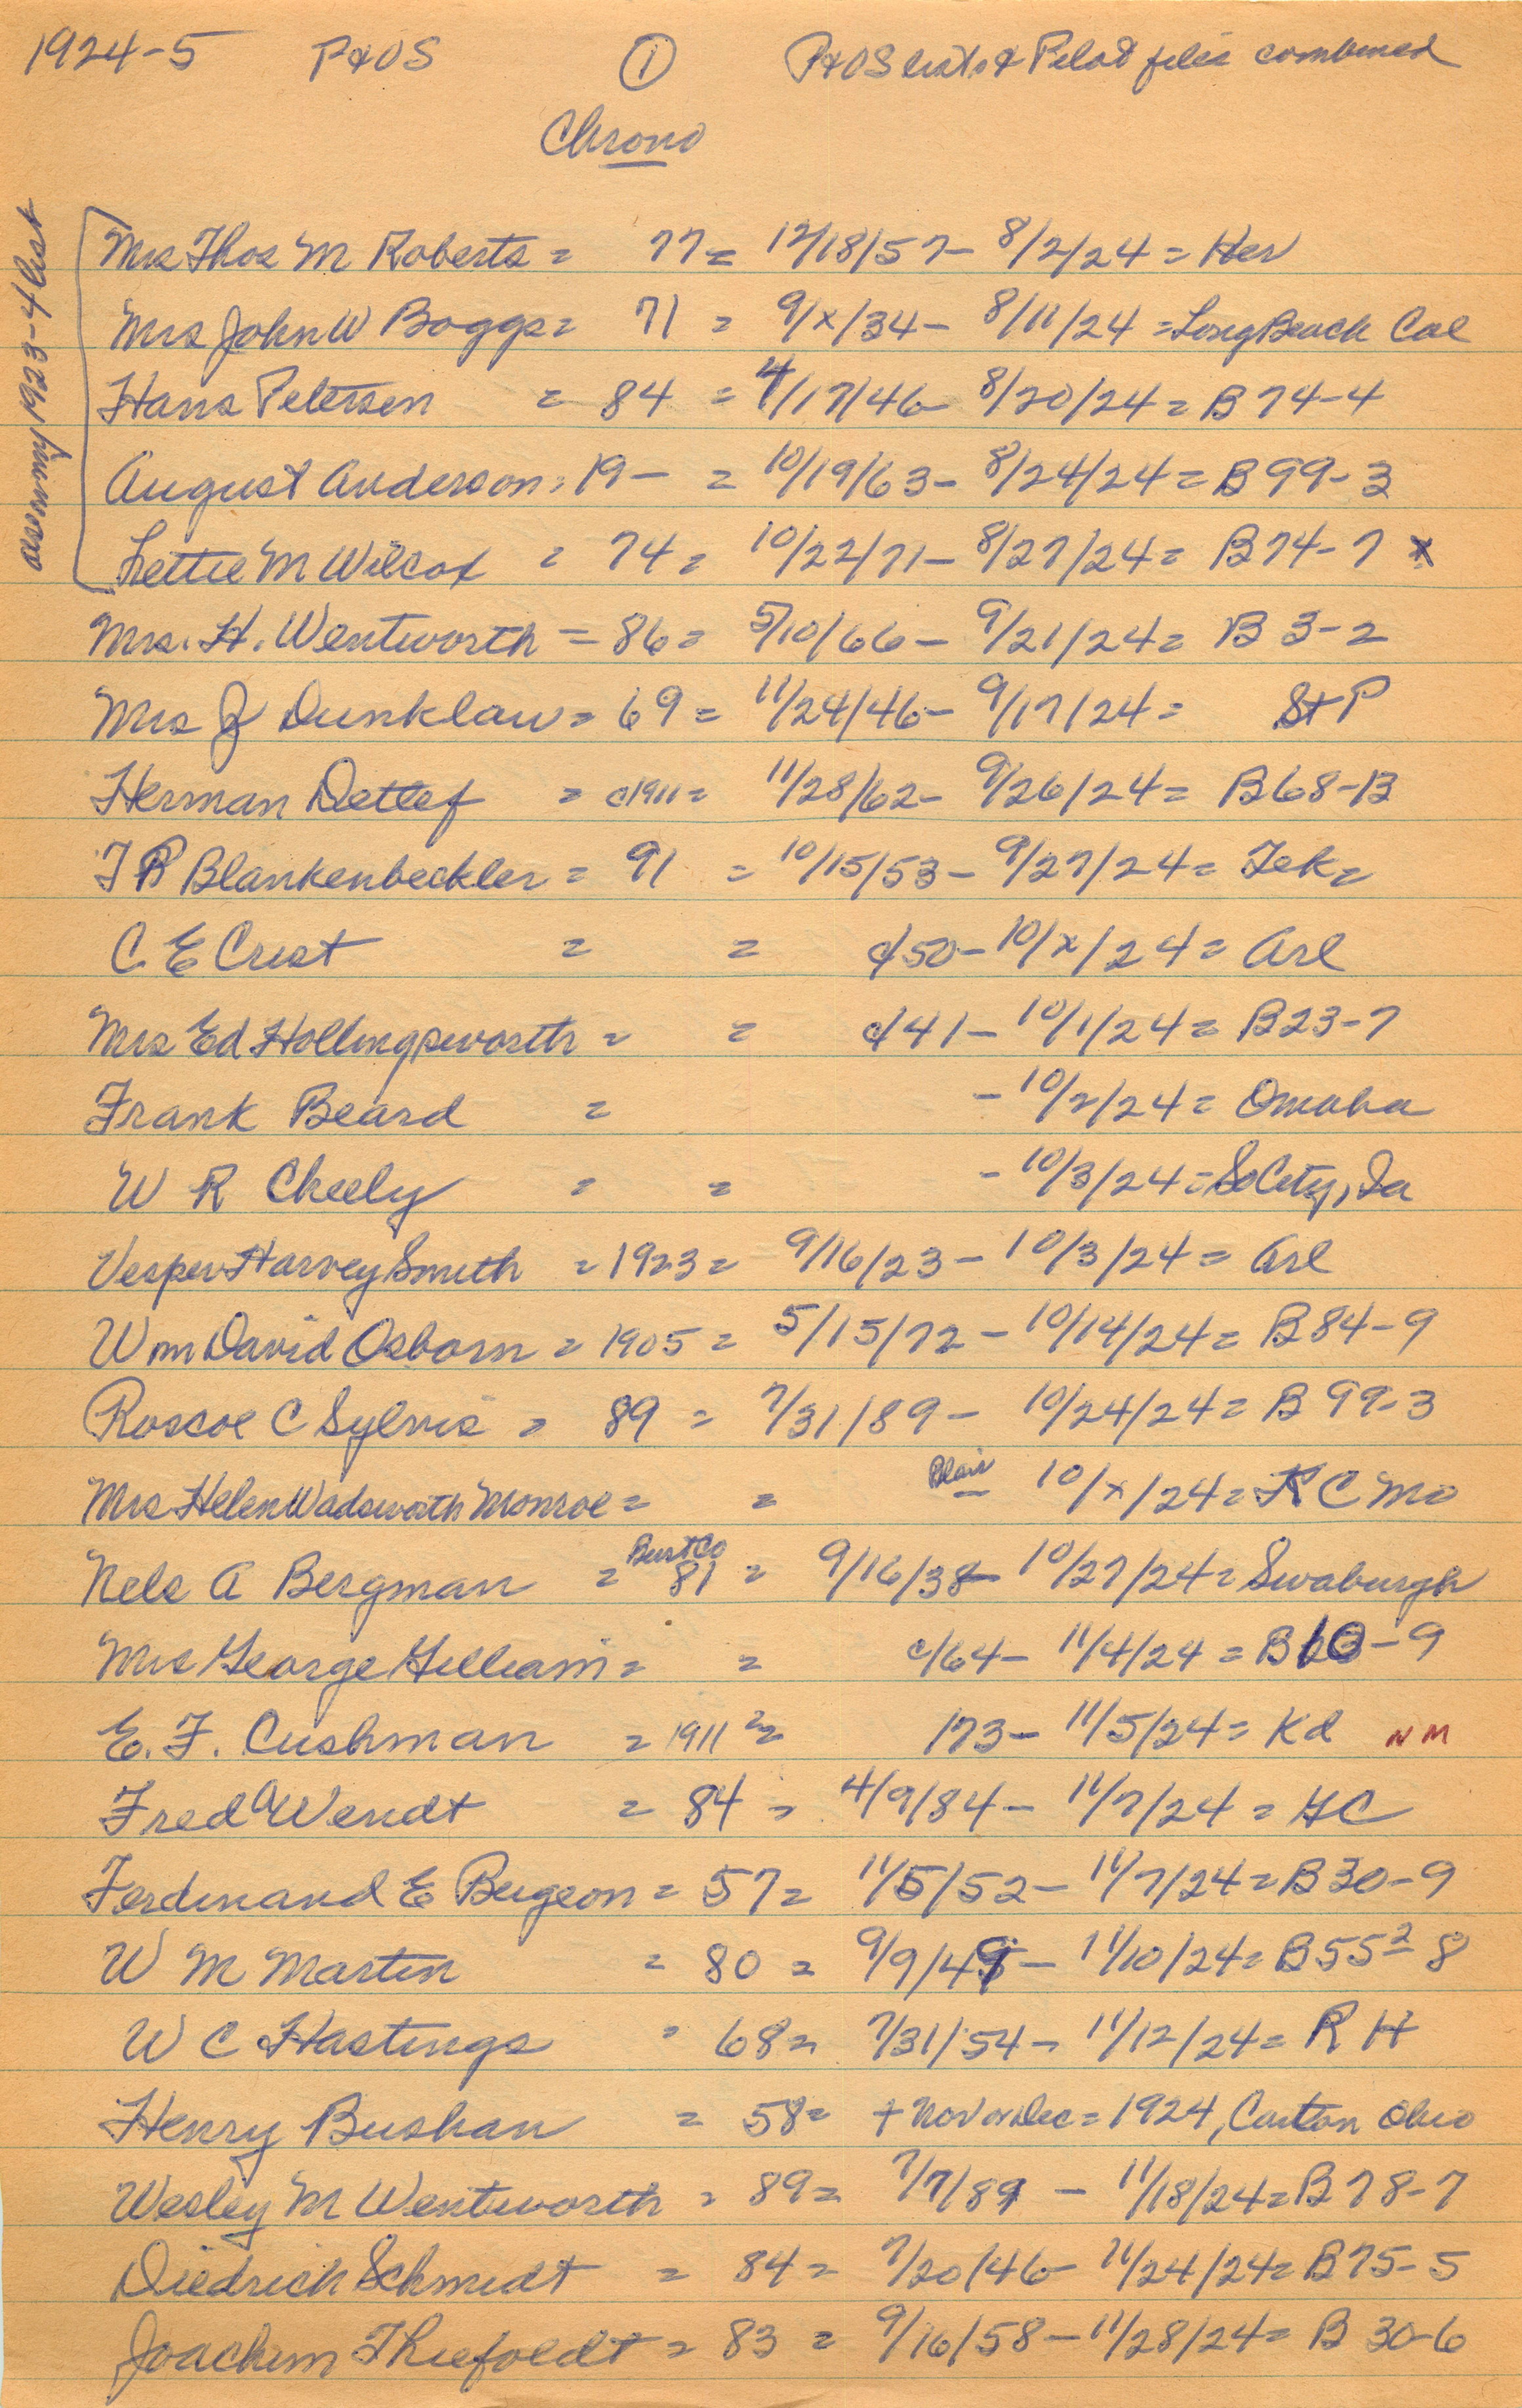 1924-5 P&OS ① P&OS lists & Pilot files combined
Chrono
on my 1923-4 list
Mrs Thos M Roberts = 77 = 12/18/57 - 8/2/24 = Her
Mrs John W Boggs = 71 = 9/x/34 - 8/11/24 = Long Beach Cal
Hans Petersen = 84 = 4/17/46 - 8/20/24 = B 74-4
August Anderson = 19- = 10/19/63 - 8/24/24 = B 99-3
Lettie M Wilcox = 74 = 10/22/71 - 8/27/24 = B74-7 x
Mrs. H. Wentworth = 86 = 5/10/66 - 9/21/24 = B 3-2
Mrs J Dunklaw = 69 = 11/24/46 - 9/17/24 = St P
Herman Detlef = c1911 = 11/28/62 - 9/26/24 = B68-13
J R Blankenbeckler = 91 = 10/15/53 - 9/27/24 = Tek =
C. E Crist = = c/50 - 10/x/24 = Arl
Mrs Ed Hollingsworth = = c/41 - 10/1/24 = B23-7
Frank Beard = - 10/2/24 = Omaha
W R Cheely = = - 10/3/24 = So City, Ia
Vesper Harvey Smith = 1923 = 9/16/23 - 10/3/24 = Arl
Wm David Osborn = 1905 = 5/15/72 - 10/14/24 = B84-9
Roscoe C Sylvis = 89 = 7/31/89 - 10/24/24 = B 99-3
Mrs Helen Wadsworth Monroe = = Blair 10/x/24 = K C Mo
Nels A Bergman = Burt Co 81 = 9/16/38 - 10/27/24 = Swaburgh
Mrs George Gilliam = = c/64 - 11/4/24 = B10-9
E. F. Cushman = 1911 ? = 173 - 11/5/24 = Kd NM
Fred A Wendt = 84 = 4/9/84 - 11/7/24 = GC
Ferdinand E Bugeon = 57 = 11/5/52 - 11/7/24 = B30-9
W M Martin = 80 = 9/9/49 - 11/10/24 = B55²-8
W C Hastings = 68 = 7/31/54 - 11/12/24 = R H
Henry Bushan = 58 = + Nov or Dec = 1924, Canton Ohio
Wesley M Wentworth = 89 = 7/7/89 - 11/18/24 = B78-7
Diedrich Schmidt = 84 = 7/20/46 - 11/24/24 = B75-5
Joachim Thiefoldt = 83 = 9/16/58 - 11/28/24 = B 30-6